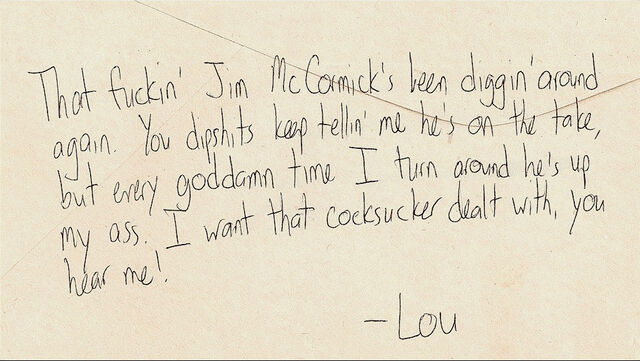 That fuckin' Jim McCormick's been diggin' around
again. You dipshits keep tellin' me he's on the take,
but every goddamn time I turn around he's up
my ass. I want that cocksucker dealt with, you
hear me!
-Lou